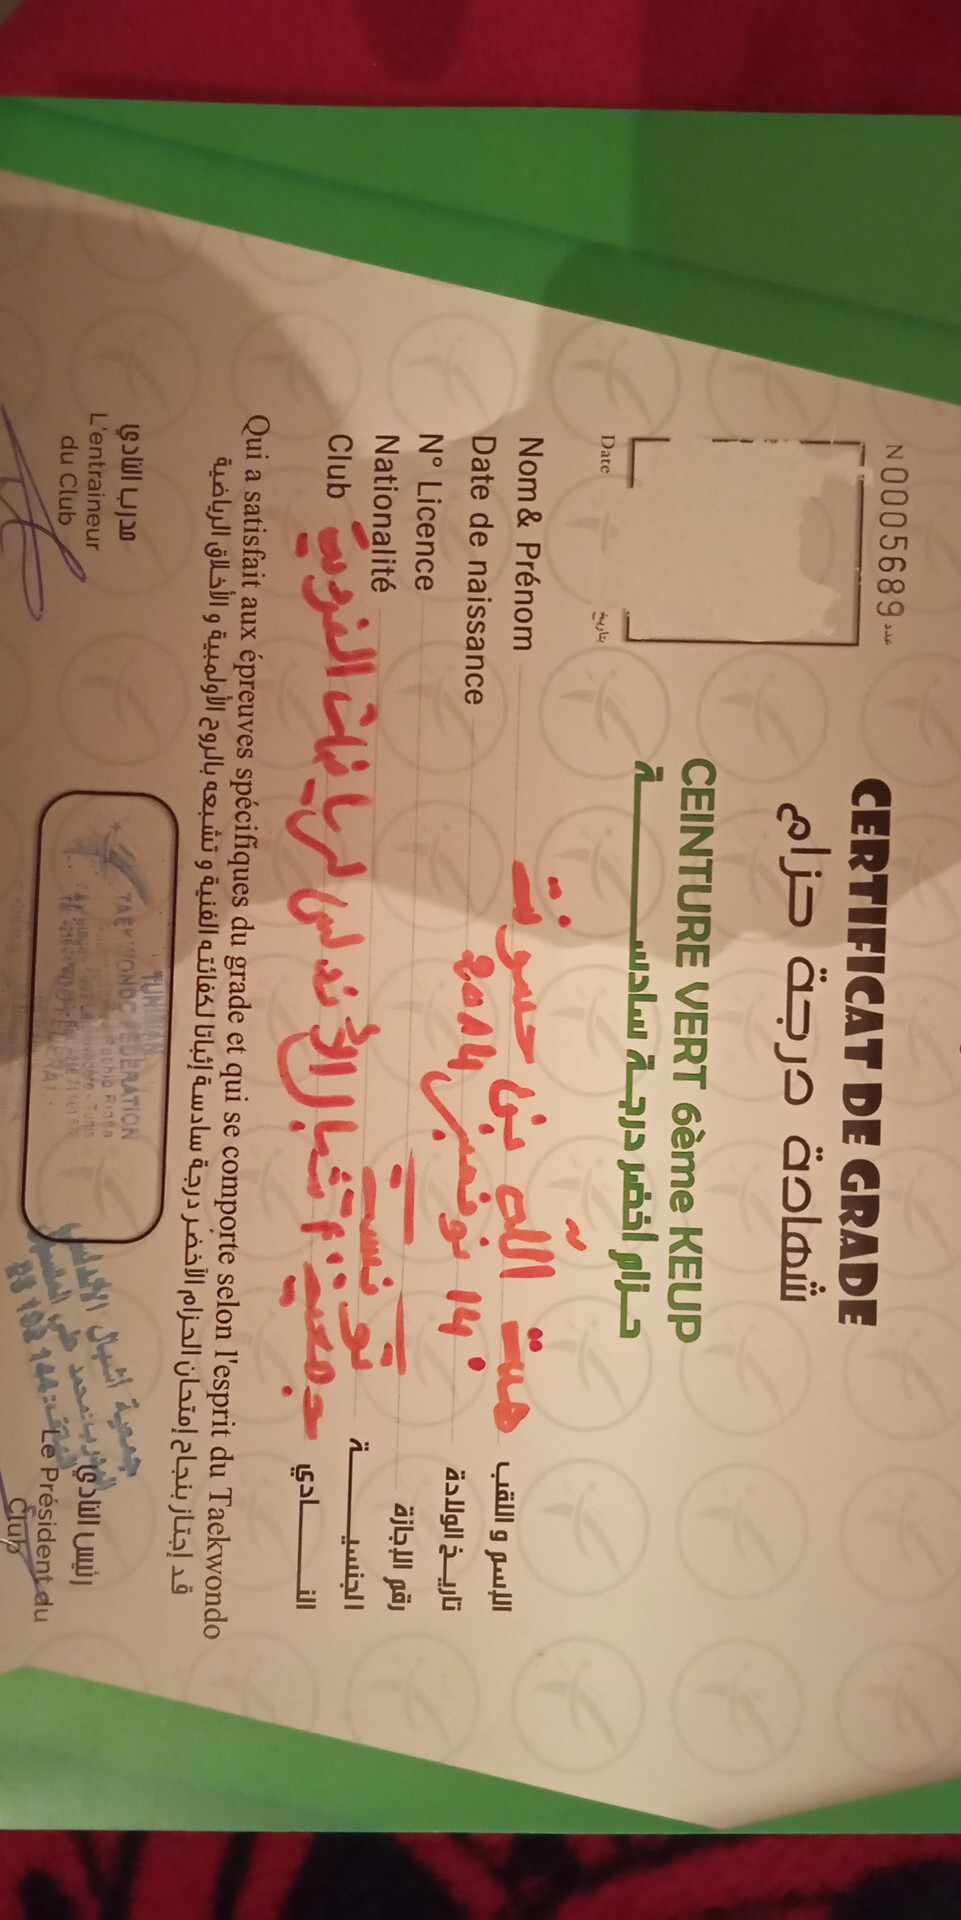 N 0005689 عدد
CERTIFICAT DE GRADE
شهادة درجة حزام
CEINTURE VERT 6ème KEUP
حزام أخضر درجة سادسة
Date بتاريخ
Nom& Prénom هبة الله بن حسونة الإسم و اللقب
Date de naissance 14 نوفمبر 2014 تاريخ الولادة
N° Licence رقم الإجازة
Nationalité تونسية الجنسية
Club جمعية أشبال الأندلس لرياضات الفردية النادي
Qui a satisfait aux épreuves spécifiques du grade et qui se comporte selon l'esprit du Taekwondo
قد إجتاز بنجاح إمتحان الحزام الأخضر درجة سادسة إثباتا لكفائته الفنية و تشبعه بالروح الأولمبية و الأخلاق الرياضية
مدرب النادي
L'entraineur
du Club
TUNISIAN
TAEKWONDO FEDERATION
رئيس النادي
Le Président du
Club
جمعية أشبال الأندلس